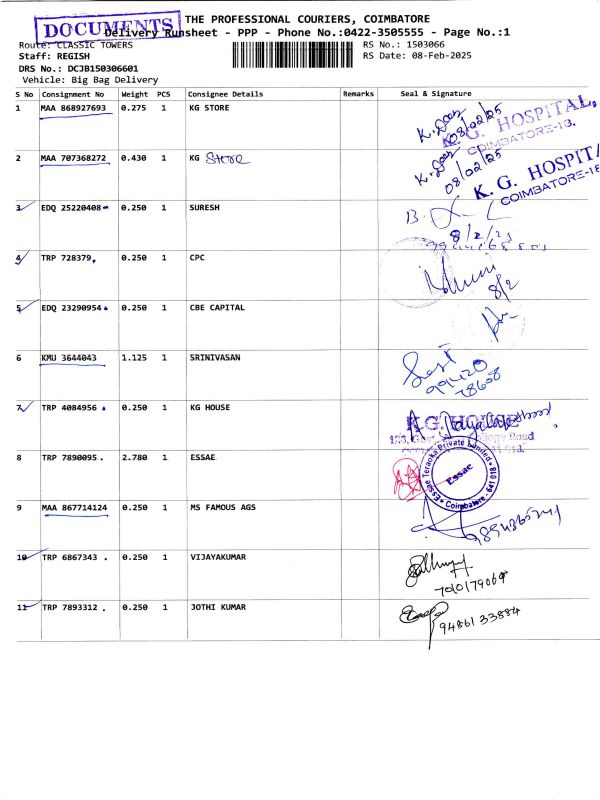 DOCUMENTS
THE PROFESSIONAL COURIERS, COIMBATORE
Delivery Runsheet - PPP - Phone No.:0422-3505555 - Page No.:1
Route: CLASSIC TOWERS
RS No.: 1503066
Staff: REGISH
RS Date: 08-Feb-2025
DRS No.: DCJB150306601
Vehicle: Big Bag Delivery
S No Consignment No Weight PCS Consignee Details Remarks Seal & Signature
1 MAA 868927693 0.275 1 KG STORE
08/02/25
K. G. HOSPITAL,
COIMBATORE-18.
2 MAA 707368272 0.430 1 KG Store
08/02/25
K. G. HOSPITAL
COIMBATORE-18
3 EDQ 25220408 0.250 1 SURESH
8/2/25
4 TRP 728379 0.250 1 CPC
8/2
5 EDQ 23290954 0.250 1 CBE CAPITAL
6 KMU 3644043 1.125 1 SRINIVASAN
99420
78608
7 TRP 4084956 0.250 1 KG HOUSE
K.G. HOUSE
8 TRP 7890095 2.780 1 ESSAE
Essae Teraoka Private Limited
Essae
Coimbatore - 641 018
9 MAA 867714124 0.250 1 MS FAMOUS AGS
10 TRP 6867343 0.250 1 VIJAYAKUMAR
7010179069
11 TRP 7893312 0.250 1 JOTHI KUMAR
9486133884